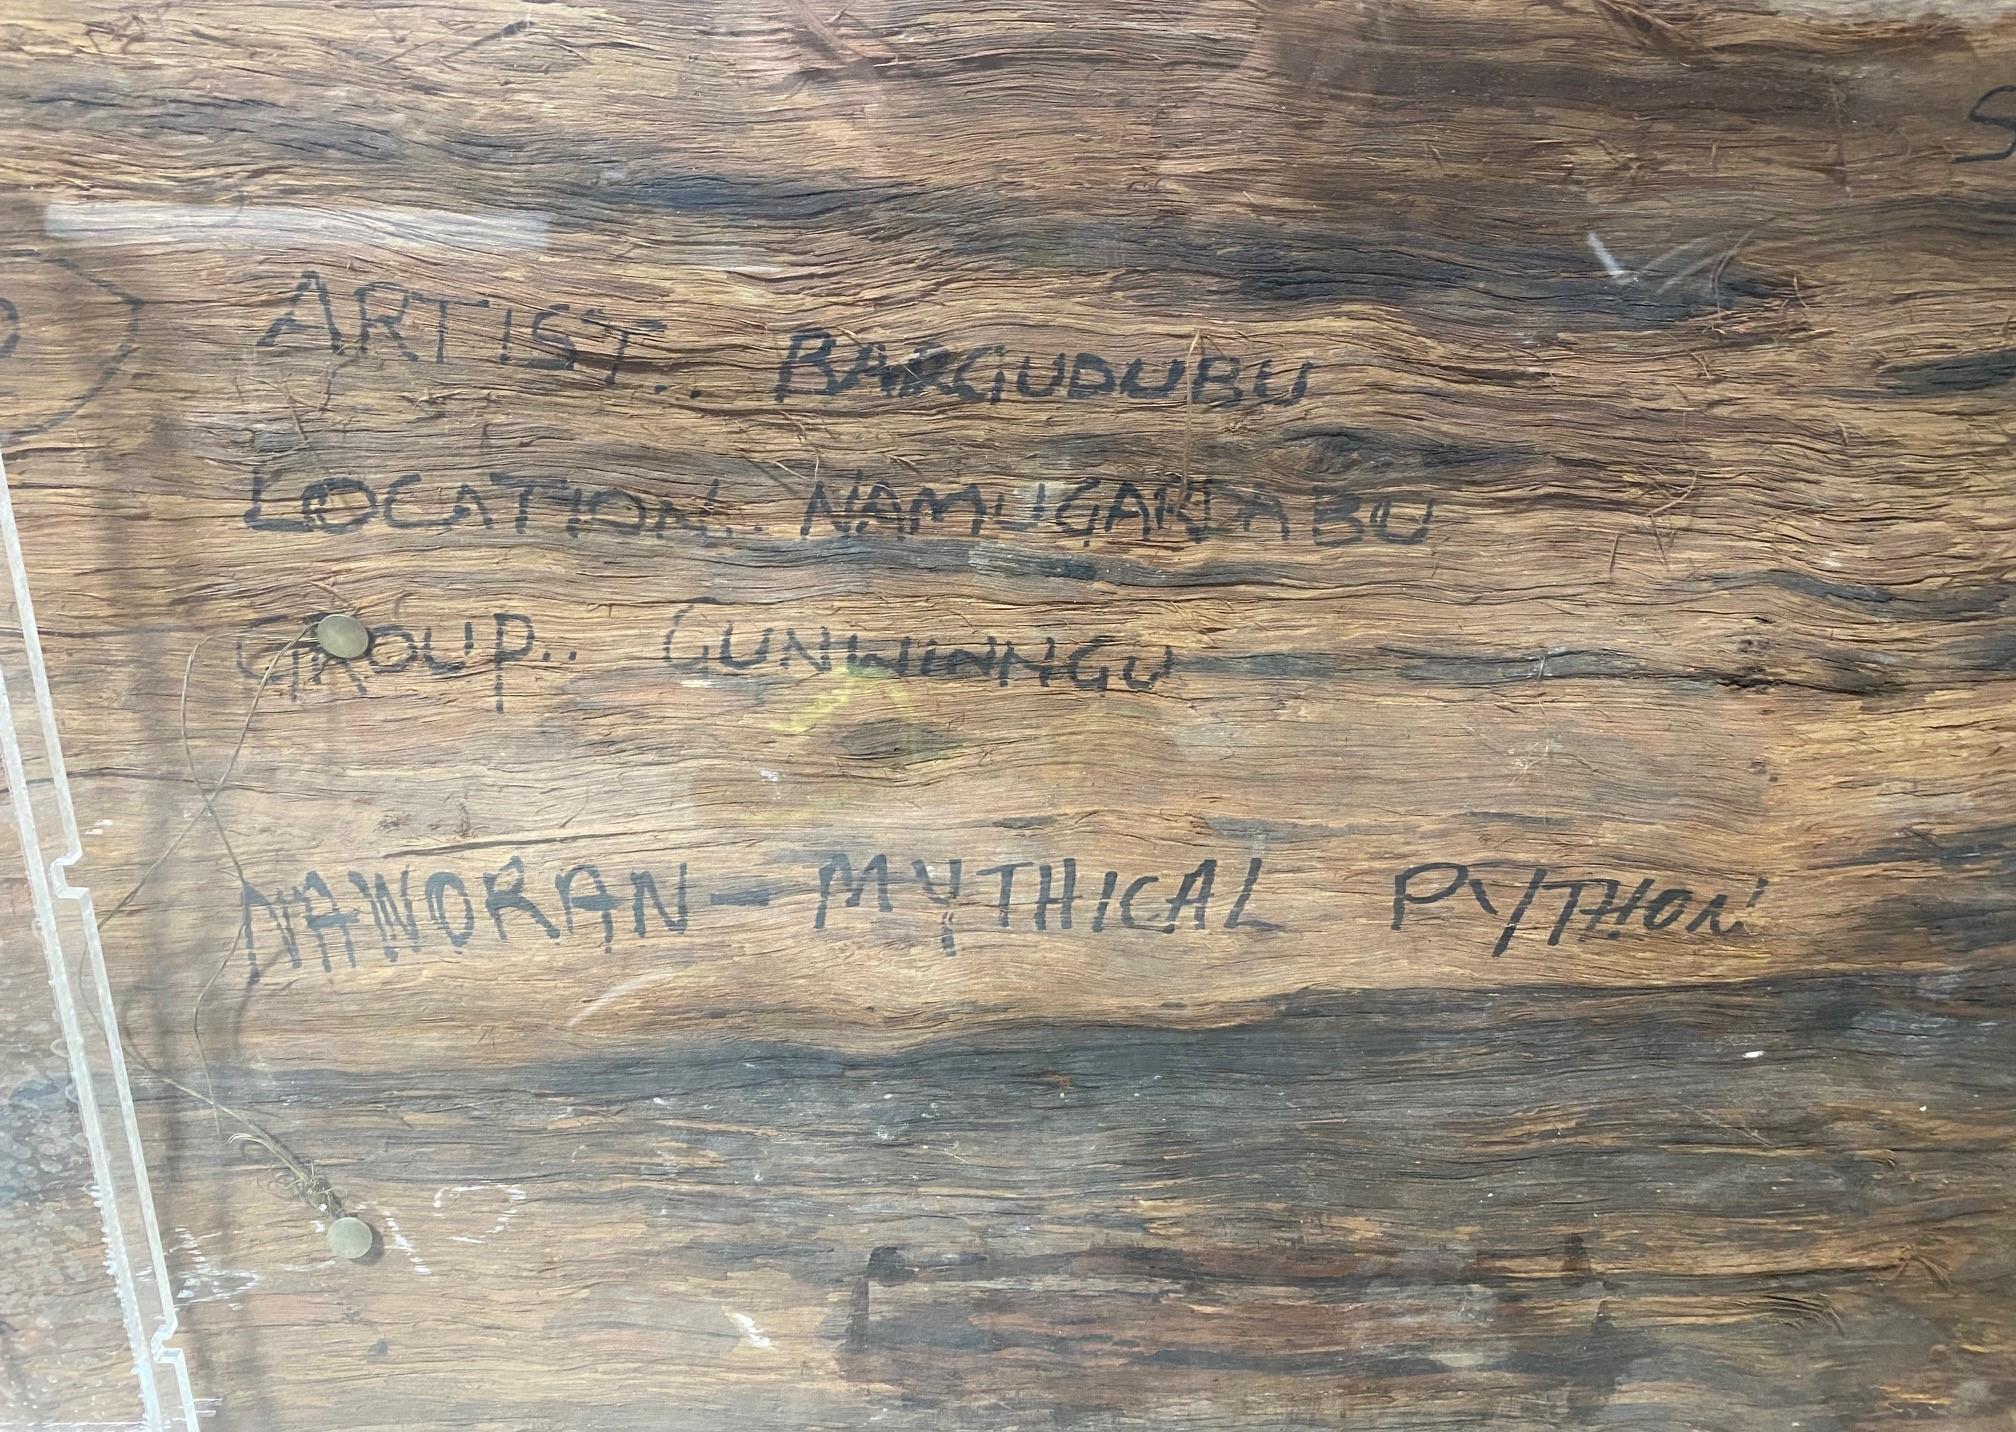 ARTIST.. BARGUDUBU
LOCATION.. NAMUGARDABU
GROUP.. GUNWINNGU
NAWORAN - MYTHICAL PYTHON